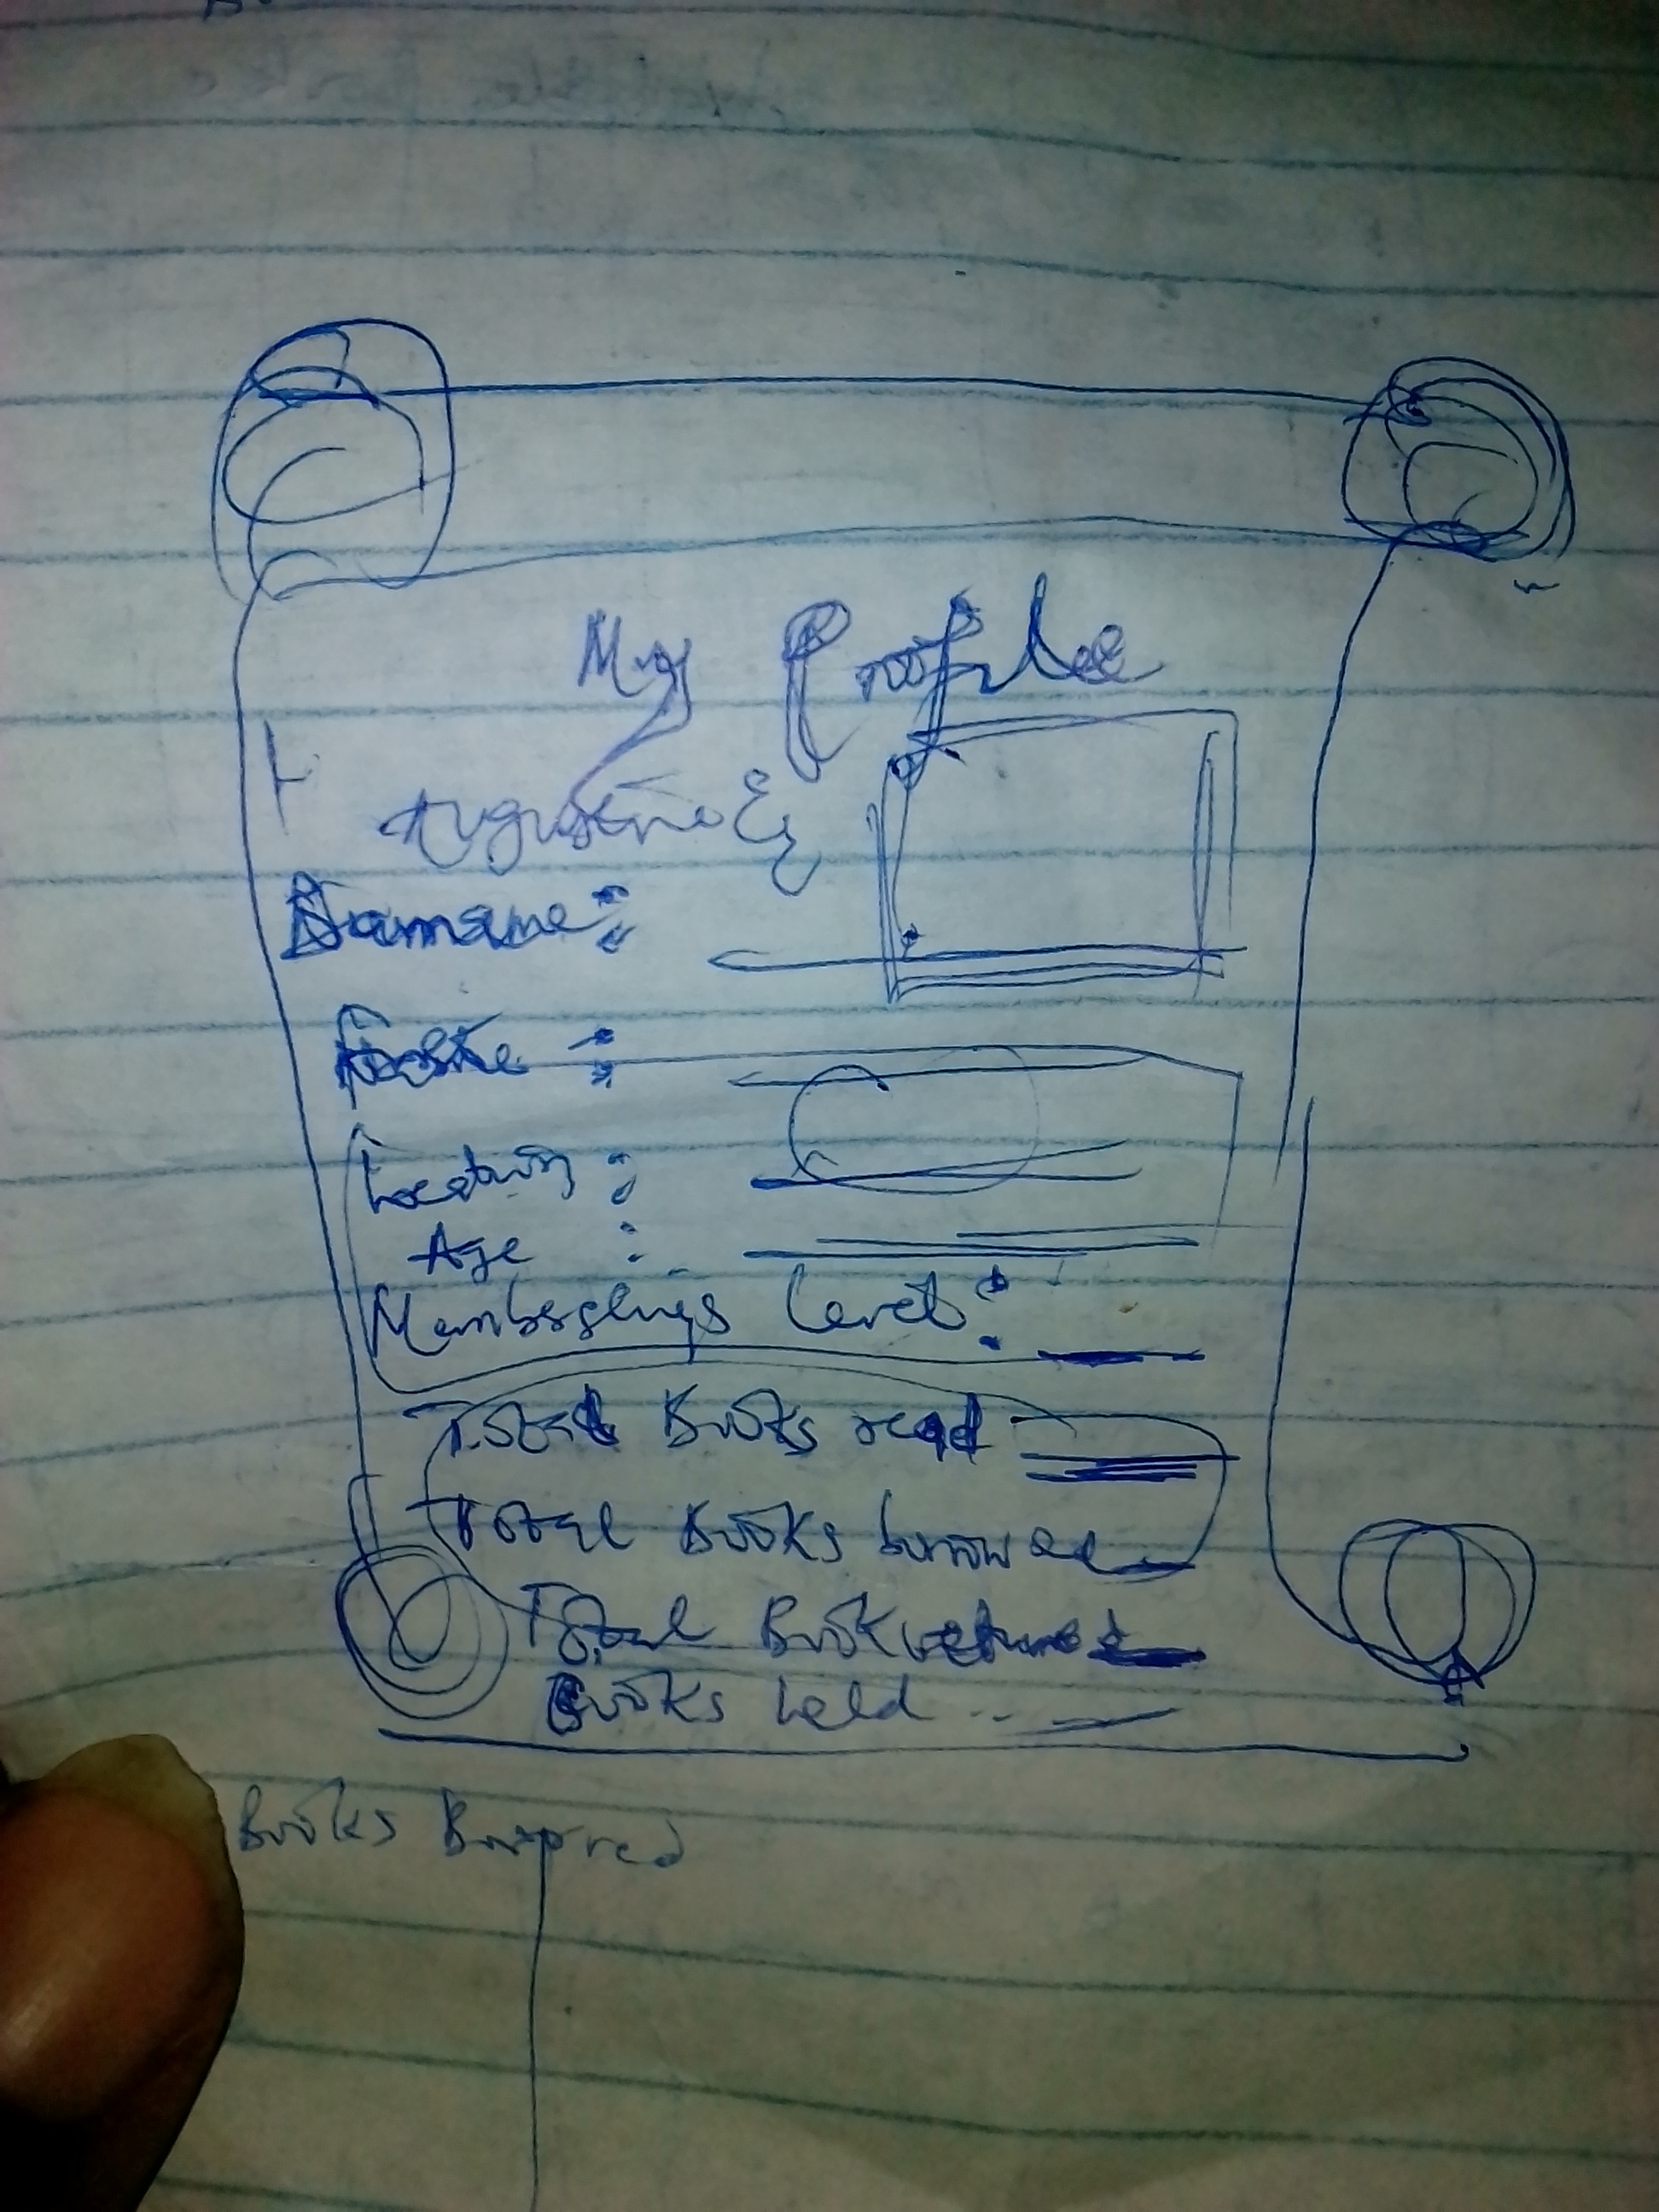 My Profile
Augustine
Surname:
:
Location:
Age :
Membership level:
Total Books read
Total Books
Total Book returned
Books held ..
Books Borrored